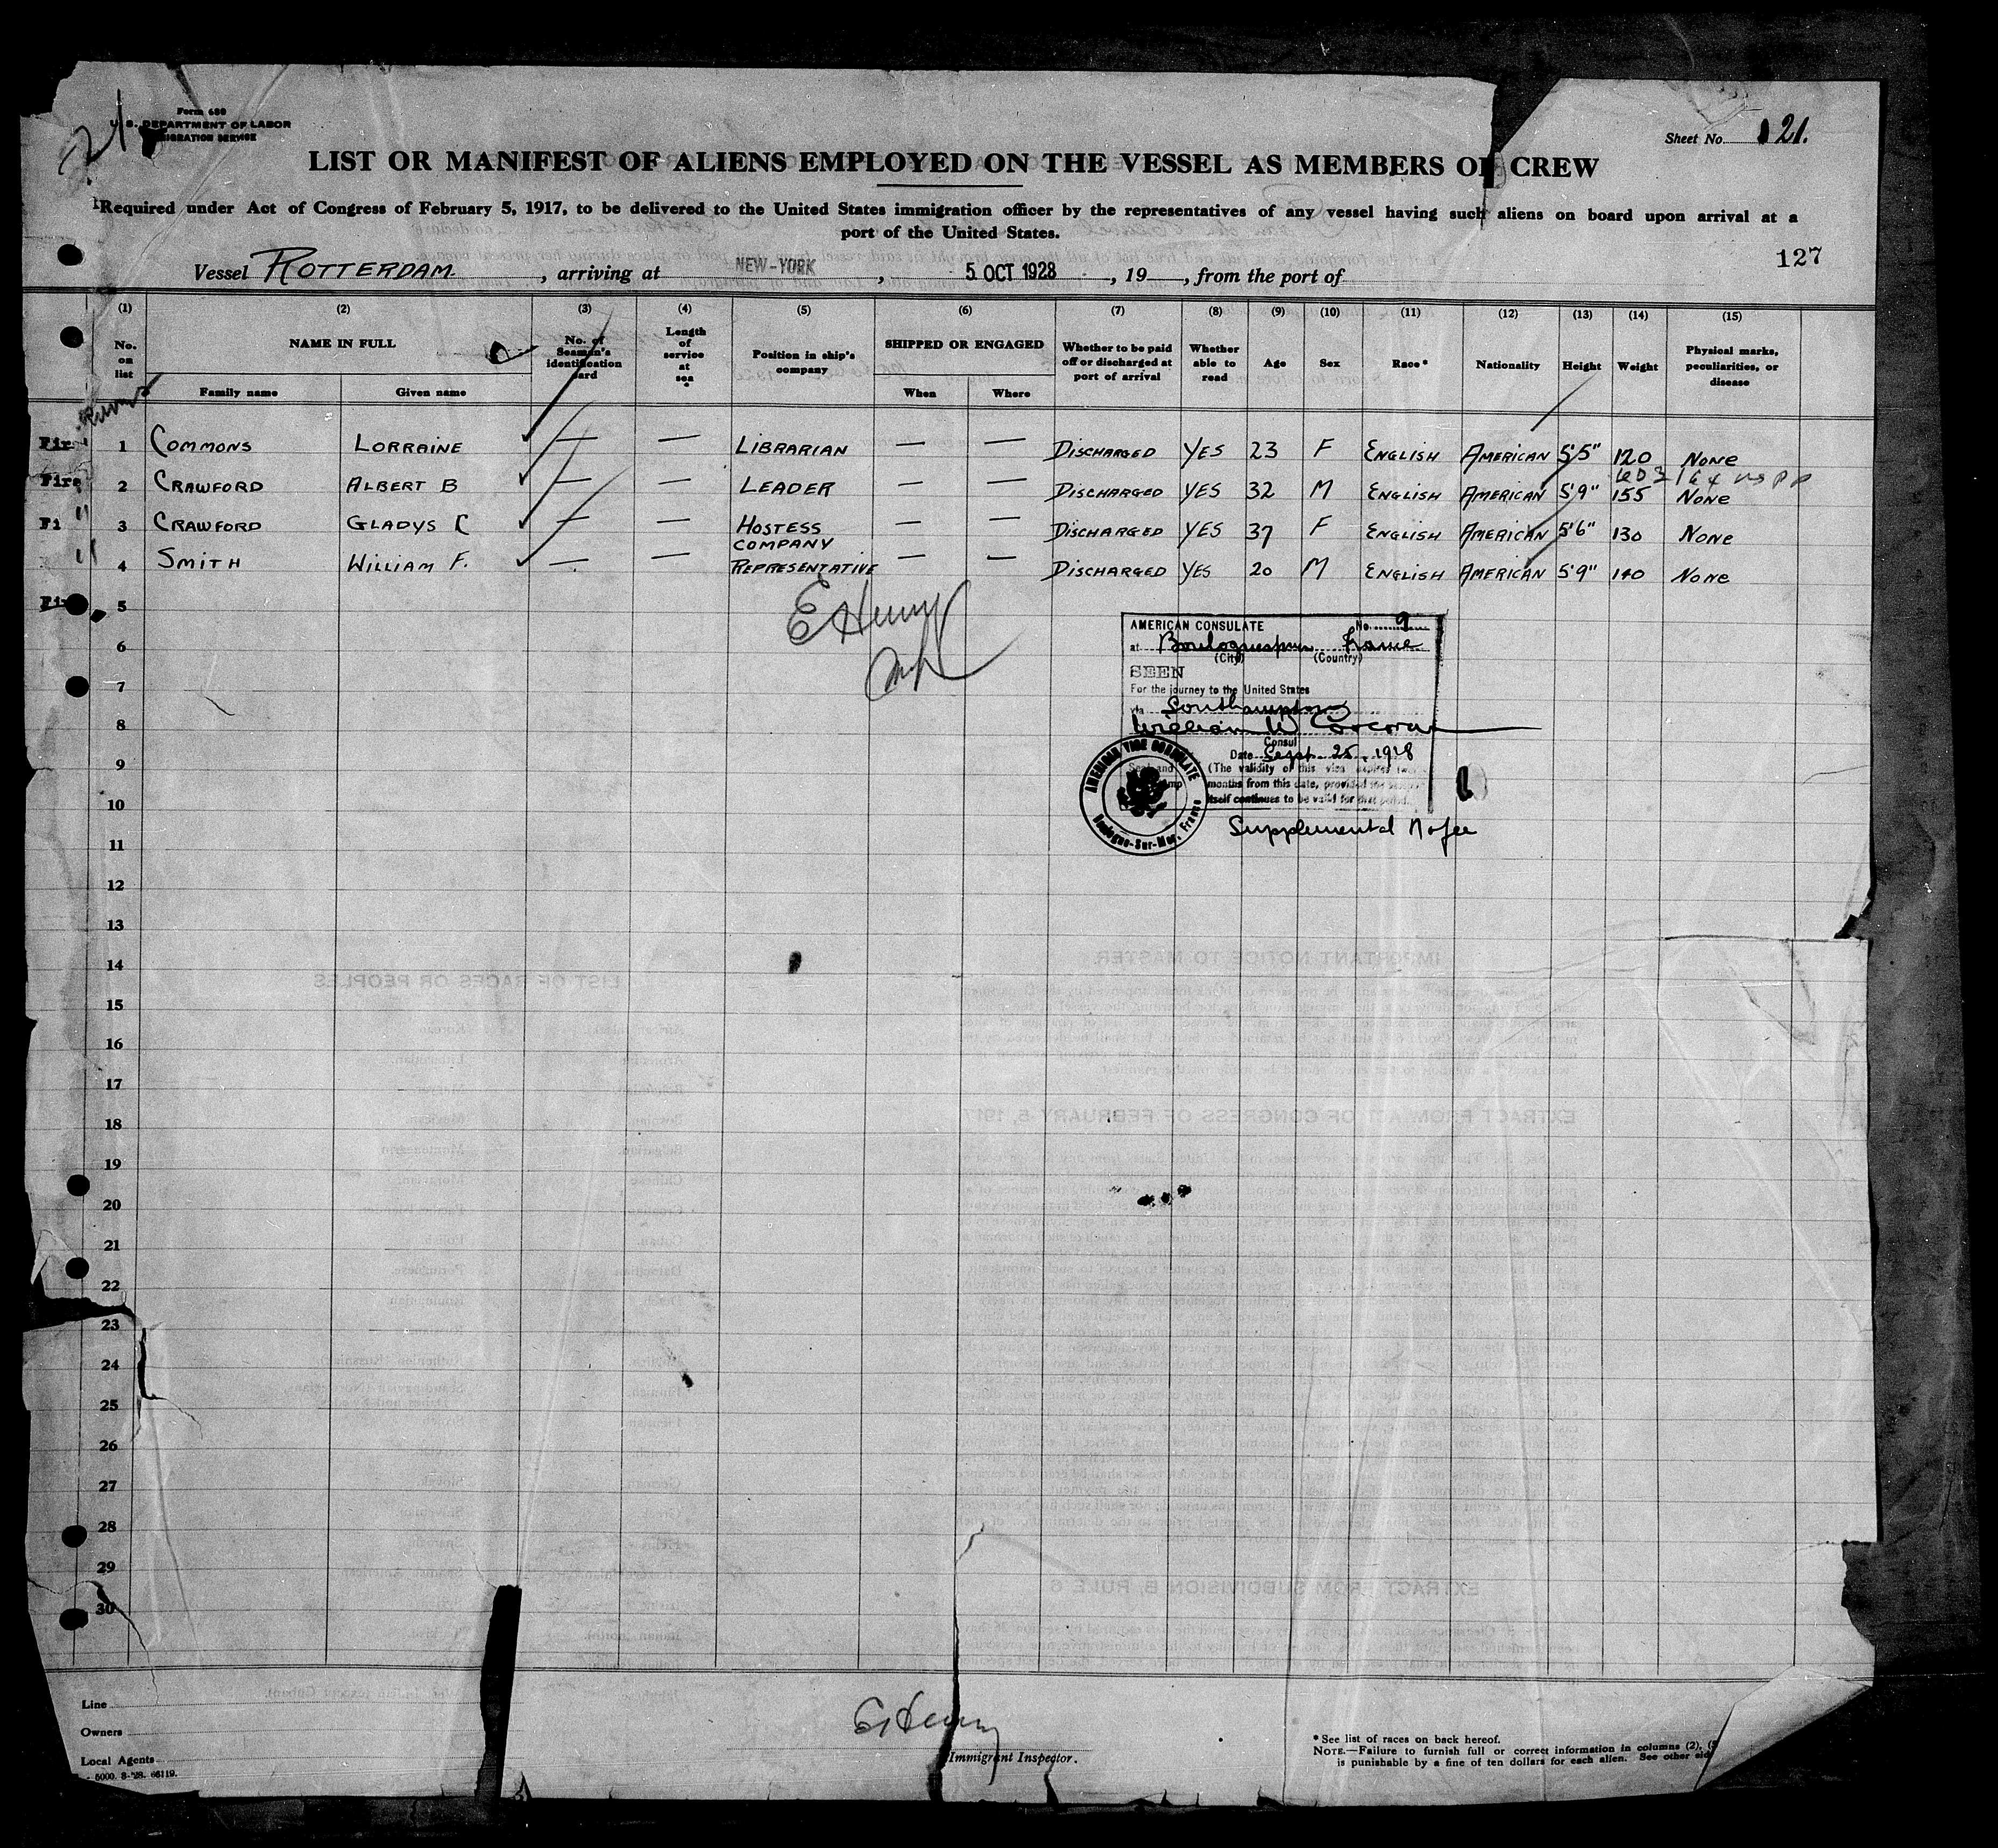 Form 680
U. S. DEPARTMENT OF LABOR
IMMIGRATION SERVICE
21
Sheet No. 121.
LIST OR MANIFEST OF ALIENS EMPLOYED ON THE VESSEL AS MEMBERS OF CREW
Required under Act of Congress of February 5, 1917, to be delivered to the United States immigration officer by the representatives of any vessel having such aliens on board upon arrival at a
port of the United States.
127
Vessel ROTTERDAM, arriving at NEW-YORK, 5 OCT 1928, 19, from the port of
(1) (2) (3) (4) (5) (6) (7) (8) (9) (10) (11) (12) (13) (14) (15)
No. on list NAME IN FULL Family name Given name No. of Seaman's identification card Length of service at sea * Position in ship's company SHIPPED OR ENGAGED When Where Whether to be paid off or discharged at port of arrival Whether able to read Age Sex Race* Nationality Height Weight Physical marks, peculiarities, or disease
Firs 1 COMMONS LORRAINE — — LIBRARIAN — — DISCHARGED YES 23 F ENGLISH AMERICAN 5'5" 120 NONE
Firs 2 CRAWFORD ALBERT B — — LEADER — — DISCHARGED YES 32 M ENGLISH AMERICAN 5'9" 155 NONE
Fi " 3 CRAWFORD GLADYS C — — HOSTESS — — DISCHARGED YES 37 F ENGLISH AMERICAN 5'6" 130 NONE
" 4 SMITH WILLIAM F. — — COMPANY REPRESENTATIVE — — DISCHARGED YES 20 M ENGLISH AMERICAN 5'9" 140 NONE
Fi 5
E Henry
6
7
8
9
10
11
12
13
14
15
16
17
18
19
20
21
22
23
24
25
26
27
28
29
30
AMERICAN CONSULATE No. 9
at Boulognesurmer France
(City) (Country)
SEEN
For the journey to the United States
via Southampton
William W Corcoran
Consul
Date Sept. 25, 1928
Seal and
(The validity of this visa expires two
months from this date, provided the
itself continues to be valid for that period.
AMERICAN VICE CONSULATE
Boulogne-Sur-Mer, France
Supplemental No fee
Line
Owners
Local Agents
5000. 8-'28. 66119.
E Henry
Immigrant Inspector.
* See list of races on back hereof.
NOTE.—Failure to furnish full or correct information in columns (2), (5
is punishable by a fine of ten dollars for each alien. See other sid